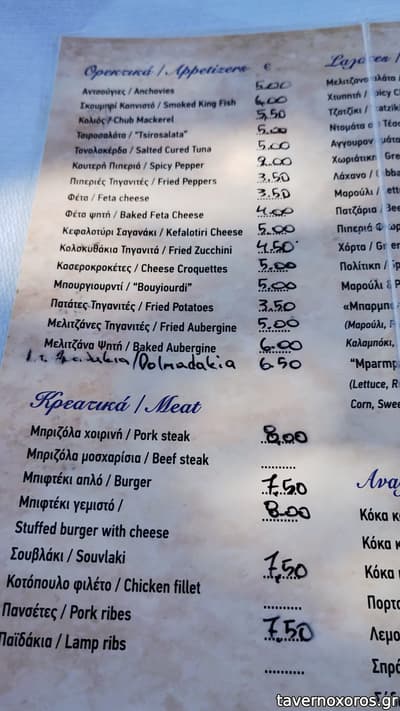 Ορεκτικά / Appetizers €
Αντσούγιες / Anchovies 5,00
Σκουμπρί Καπνιστό / Smoked King Fish 6,00
Κολιός / Chub Mackerel 5,50
Τσιροσαλάτα / "Tsirosalata" 5,00
Τονολακέρδα / Salted Cured Tuna 5,00
Καυτερή Πιπεριά / Spicy Pepper 2,00
Πιπεριές Τηγανιτές / Fried Peppers 3,50
Φέτα / Feta cheese 3,50
Φέτα ψητή / Baked Feta Cheese 4,00
Κεφαλοτύρι Σαγανάκι / Kefalotiri Cheese 5,00
Κολοκυθάκια Τηγανιτά / Fried Zucchini 4,50
Κασεροκροκέτες / Cheese Croquettes 5,00
Μπουργιουρντί / "Bouyiourdi" 5,00
Πατάτες Τηγανιτές / Fried Potatoes 3,50
Μελιτζάνες Τηγανιτές / Fried Aubergine 5,00
Μελιτζάνα Ψητή / Baked Aubergine 6,00
/Dolmadakia 6.50
Κρεατικά / Meat
Μπριζόλα χοιρινή / Pork steak 8,00
Μπριζόλα μοσχαρίσια / Beef steak ..........
Μπιφτέκι απλό / Burger 7,50
Μπιφτέκι γεμιστό / 8,00
Stuffed burger with cheese
Σουβλάκι / Souvlaki 7,50
Κοτόπουλο φιλέτο / Chicken fillet ..........
Πανσέτες / Pork ribes 7,50
Παϊδάκια / Lamp ribs ..........
Μελιτζανοσαλάτα
Χτυπητή
Τζατζίκι
Ντομάτα
Χωριάτικη
Λάχανο
Μαρούλι
Πατζάρια
Πιπεριά
Χόρτα
Πολίτικη
Μαρούλι
«Μπαρμπ
(Μαρούλι,
Καλαμπόκι,
(Lettuce, R
Corn, Swee
Ανα
Κόκα κ
Κόκα κ
Κόκα
Πορτο
Λεμο
Σπρά
tavernoxoros.gr